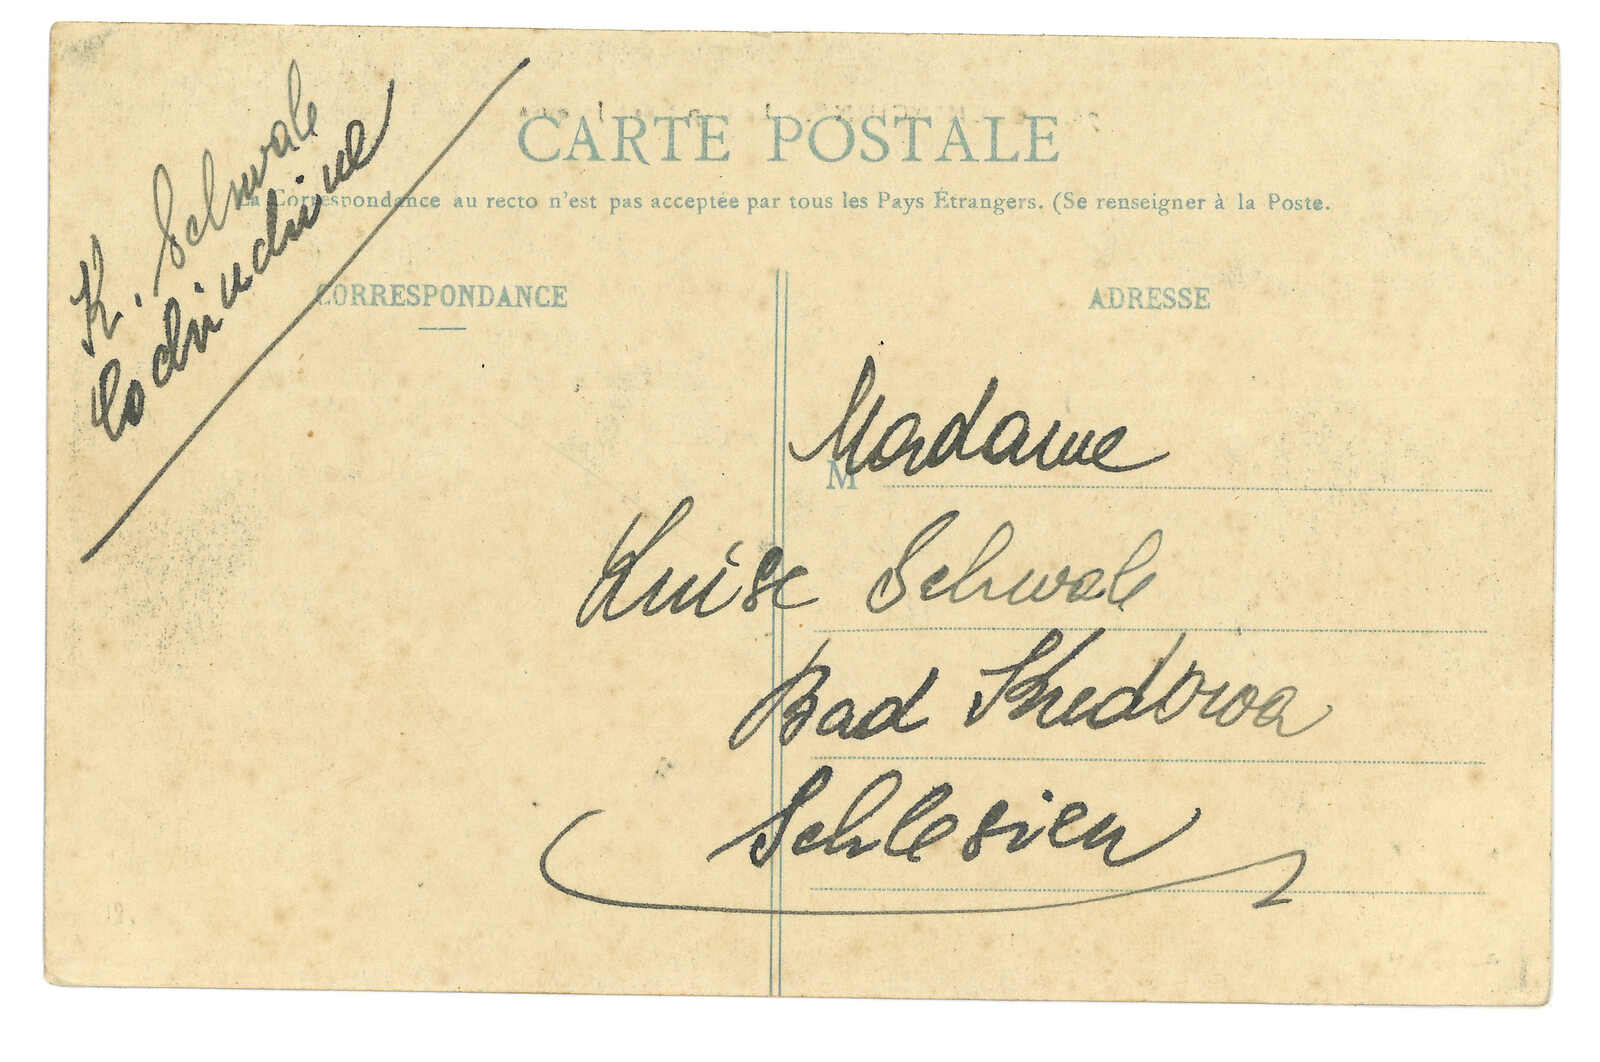 K. Schwale
Cochinchine
CARTE POSTALE
La Correspondance au recto n'est pas acceptée par tous les Pays Étrangers. (Se renseigner à la Poste.
CORRESPONDANCE
ADRESSE
M
Madame
Luise Schwale
Bad Kudowa
Schlesien